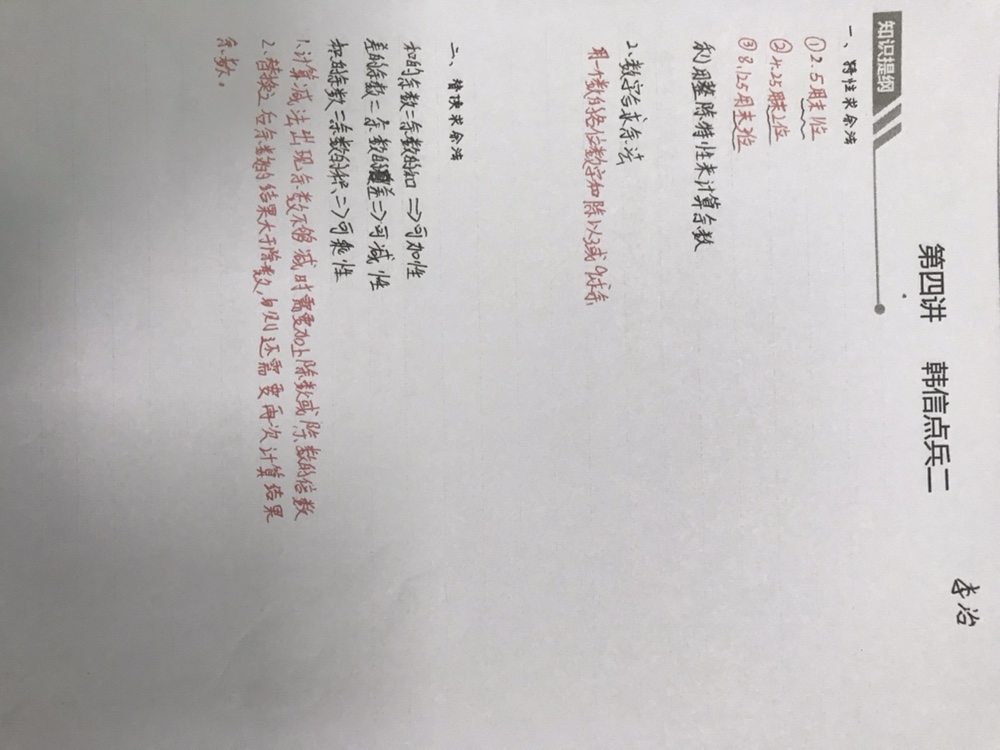 第四讲 韩信点兵二
李治
知识提纲
一、特性求余法
①2.5用末1位
②4.25用末2位
③8.125用末3位
利用整除特性来计算余数
2.数字和求余法
用一个数的各位数字和除以3或9求余
二、替换求余法
和的余数=余数的和 => 可加性
差的余数=余数的差=>可减性
积的余数=余数的积=>可乘性
1.计算减法出现余数不够减时需要加上除数或除数的倍数
2.替换之后余数的结果大于除数,则还需要再次计算结果
余数。